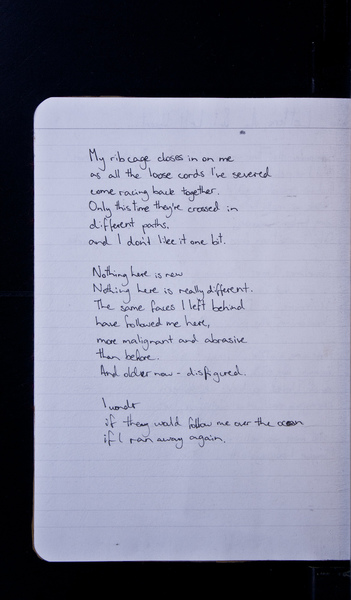 My ribcage closes in on me
as all the loose cords I've severed
come racing back together.
Only this time they're crossed in
different paths.
and I don't like it one bit.
Nothing here is new
Nothing here is really different.
The same faces I left behind
have followed me here,
more malignant and abrasive
than before.
And older now - disfigured.
I wonder
if they would follow me over the ocean
if I ran away again.